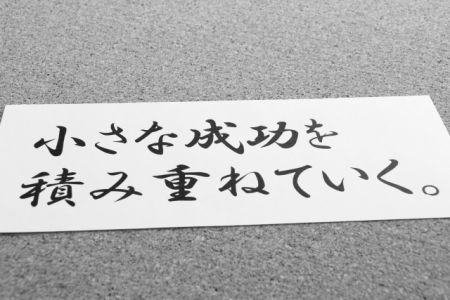 小さな成功を
積み重ねていく。